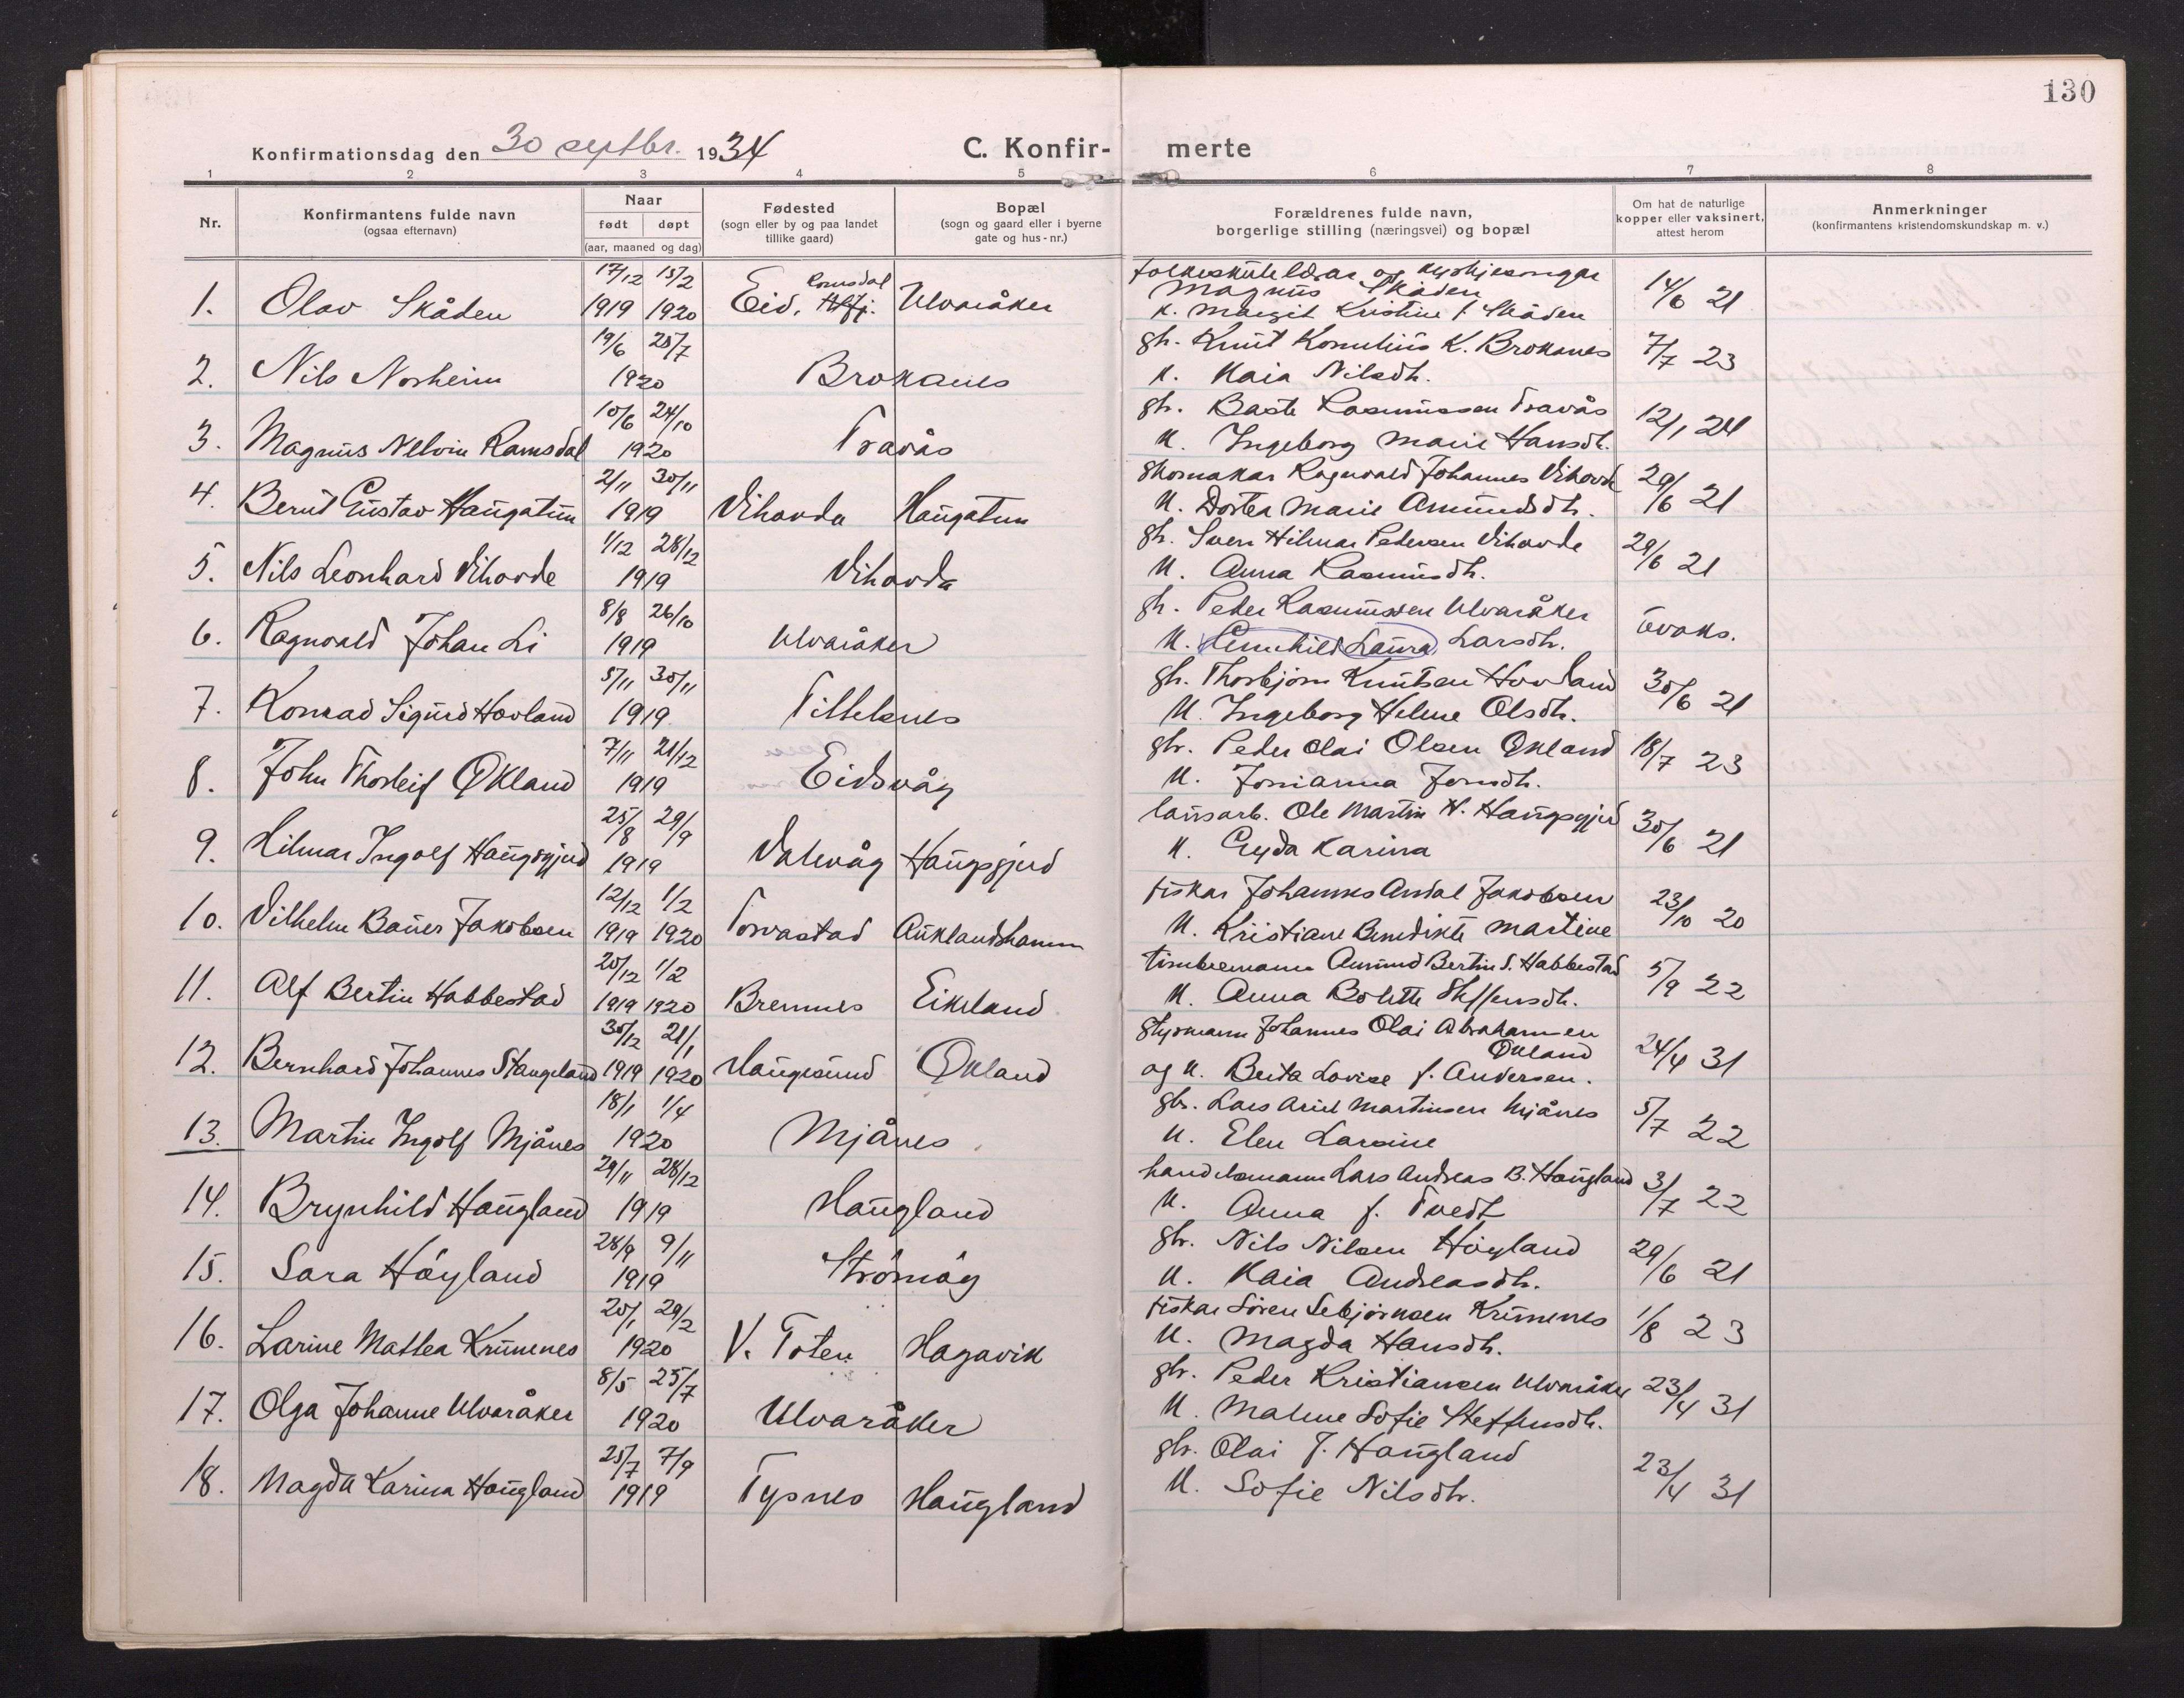 130
Konfirmationsdag den 30 septbr. 1934
C. Konfir- merte
1 2 3 4 5 6 7 8
Nr.
Konfirmantens fulde navn
(ogsaa efternavn)
Naar
født døpt
(aar, maaned og dag)
Fødested
(sogn eller by og paa landet
tillike gaard)
Bopæl
(sogn og gaard eller i byerne
gate og hus-nr.)
Forældrenes fulde navn,
borgerlige stilling (næringsvei) og bopæl
Om hat de naturlige
kopper eller vaksinert,
attest herom
Anmerkninger
(konfirmantens kristendomskundskap m. v.)
17/12 15/2 Romsdal folkeskulelærar og kyrkjesongar
Magnus Skåden
1. Olav Skåden 1919 1920 Eid, Ulvaråker k. Margit Kristine f. Skåden 14/6 21
19/6 25/7 gbr. Knut Kornelius K. Brokanes
2. Nils Norheim 1920 Brokanes k. Kaia Nilsdtr. 7/7 23
10/6 24/10 gbr. Baste Rasmussen Travås
3. Magnus Nelvin Ramsdal 1920 Travås k. Ingeborg Marie Hansdtr. 12/1 24
2/11 30/11 skomakar Ragnvald Johannes Vihovde
4. Bernt Gustav Haugatun 1919 Vihovda Haugatun k. Dortea Marie Amundsdtr. 29/6 21
1/12 28/12 gbr. Sven Hilmar Pedersen Vihovde
5. Nils Leonhard Vihovde 1919 Vihovda k. Anna Rasmusdtr. 29/6 21
8/8 26/10 gbr. Peder Rasmussen Ulvaråker
6. Ragnvald Johan Li 1919 Ulvaråker k. Gunhild Laura Larsdtr. uvaks.
5/11 30/11 gbr. Thorbjørn Knutsen Hovland
7. Konrad Sigurd Hovland 1919 Tittelsnes k. Ingeborg Helene Olsdtr. 30/6 21
7/11 21/12 gbr. Peder Olai Olsen Økland
8. John Thorleif Økland 1919 Eidsvåg k. Jonianna Jonsdtr. 18/7 23
25/8 29/9 lausarb. Ole Martin H. Haugsgjerd
9. Hilmar Ingolf Haugsgjerd 1919 Valevåg Haugsgjerd k. Gyda Karina 30/6 21
12/12 1/2 fiskar Johannes Andal Jakobsen
10. Vilhelm Bauer Jakobsen 1919 1920 Torvastad Auklandshamn k. Kristiane Benedikte Martine 23/10 20
20/12 1/2 timbremann Amund Bertin S. Habbestad
11. Alf Bertin Habbestad 1919 1920 Bremnes Eikeland k. Anna Bolette Steffensdtr. 5/9 22
30/12 21/1 styrmann Johannes Olai Abrahamsen
Økland
12. Bernhard Johannes Stangeland 1919 1920 Haugesund Økland og k. Berta Lovise f. Andersen. 24/4 31
18/1 1/4 gbr. Lars Ariel Martinsen Mjånes
13. Martin Ingolf Mjånes 1920 Mjånes k. Elen Larsine 5/7 22
29/11 28/12 handelsmann Lars Andreas B. Haugland
14. Brynhild Haugland 1919 Haugland k. Anna f. Tvedt 3/7 22
28/9 9/11 gbr. Nils Nilsen Höyland
15. Sara Höyland 1919 Strömøy k. Kaia Andreasdtr. 29/6 21
20/1 29/2 fiskar Sören Sebjörnsen Krummenes
16. Larine Mathea Krumenes 1920 V. Toten Hagavik k. Magda Hansdtr. 1/8 23
8/5 25/7 gbr. Peder Kristiansen Ulvaråker
17. Olga Johanne Ulvaråker 1920 Ulvaråker k. Malene Sofie Steffensdtr. 23/4 31
25/7 7/9 gbr. Olai J. Haugland
18. Magda Karina Haugland 1919 Tysnes Haugland k. Sofie Nilsdtr. 23/4 31